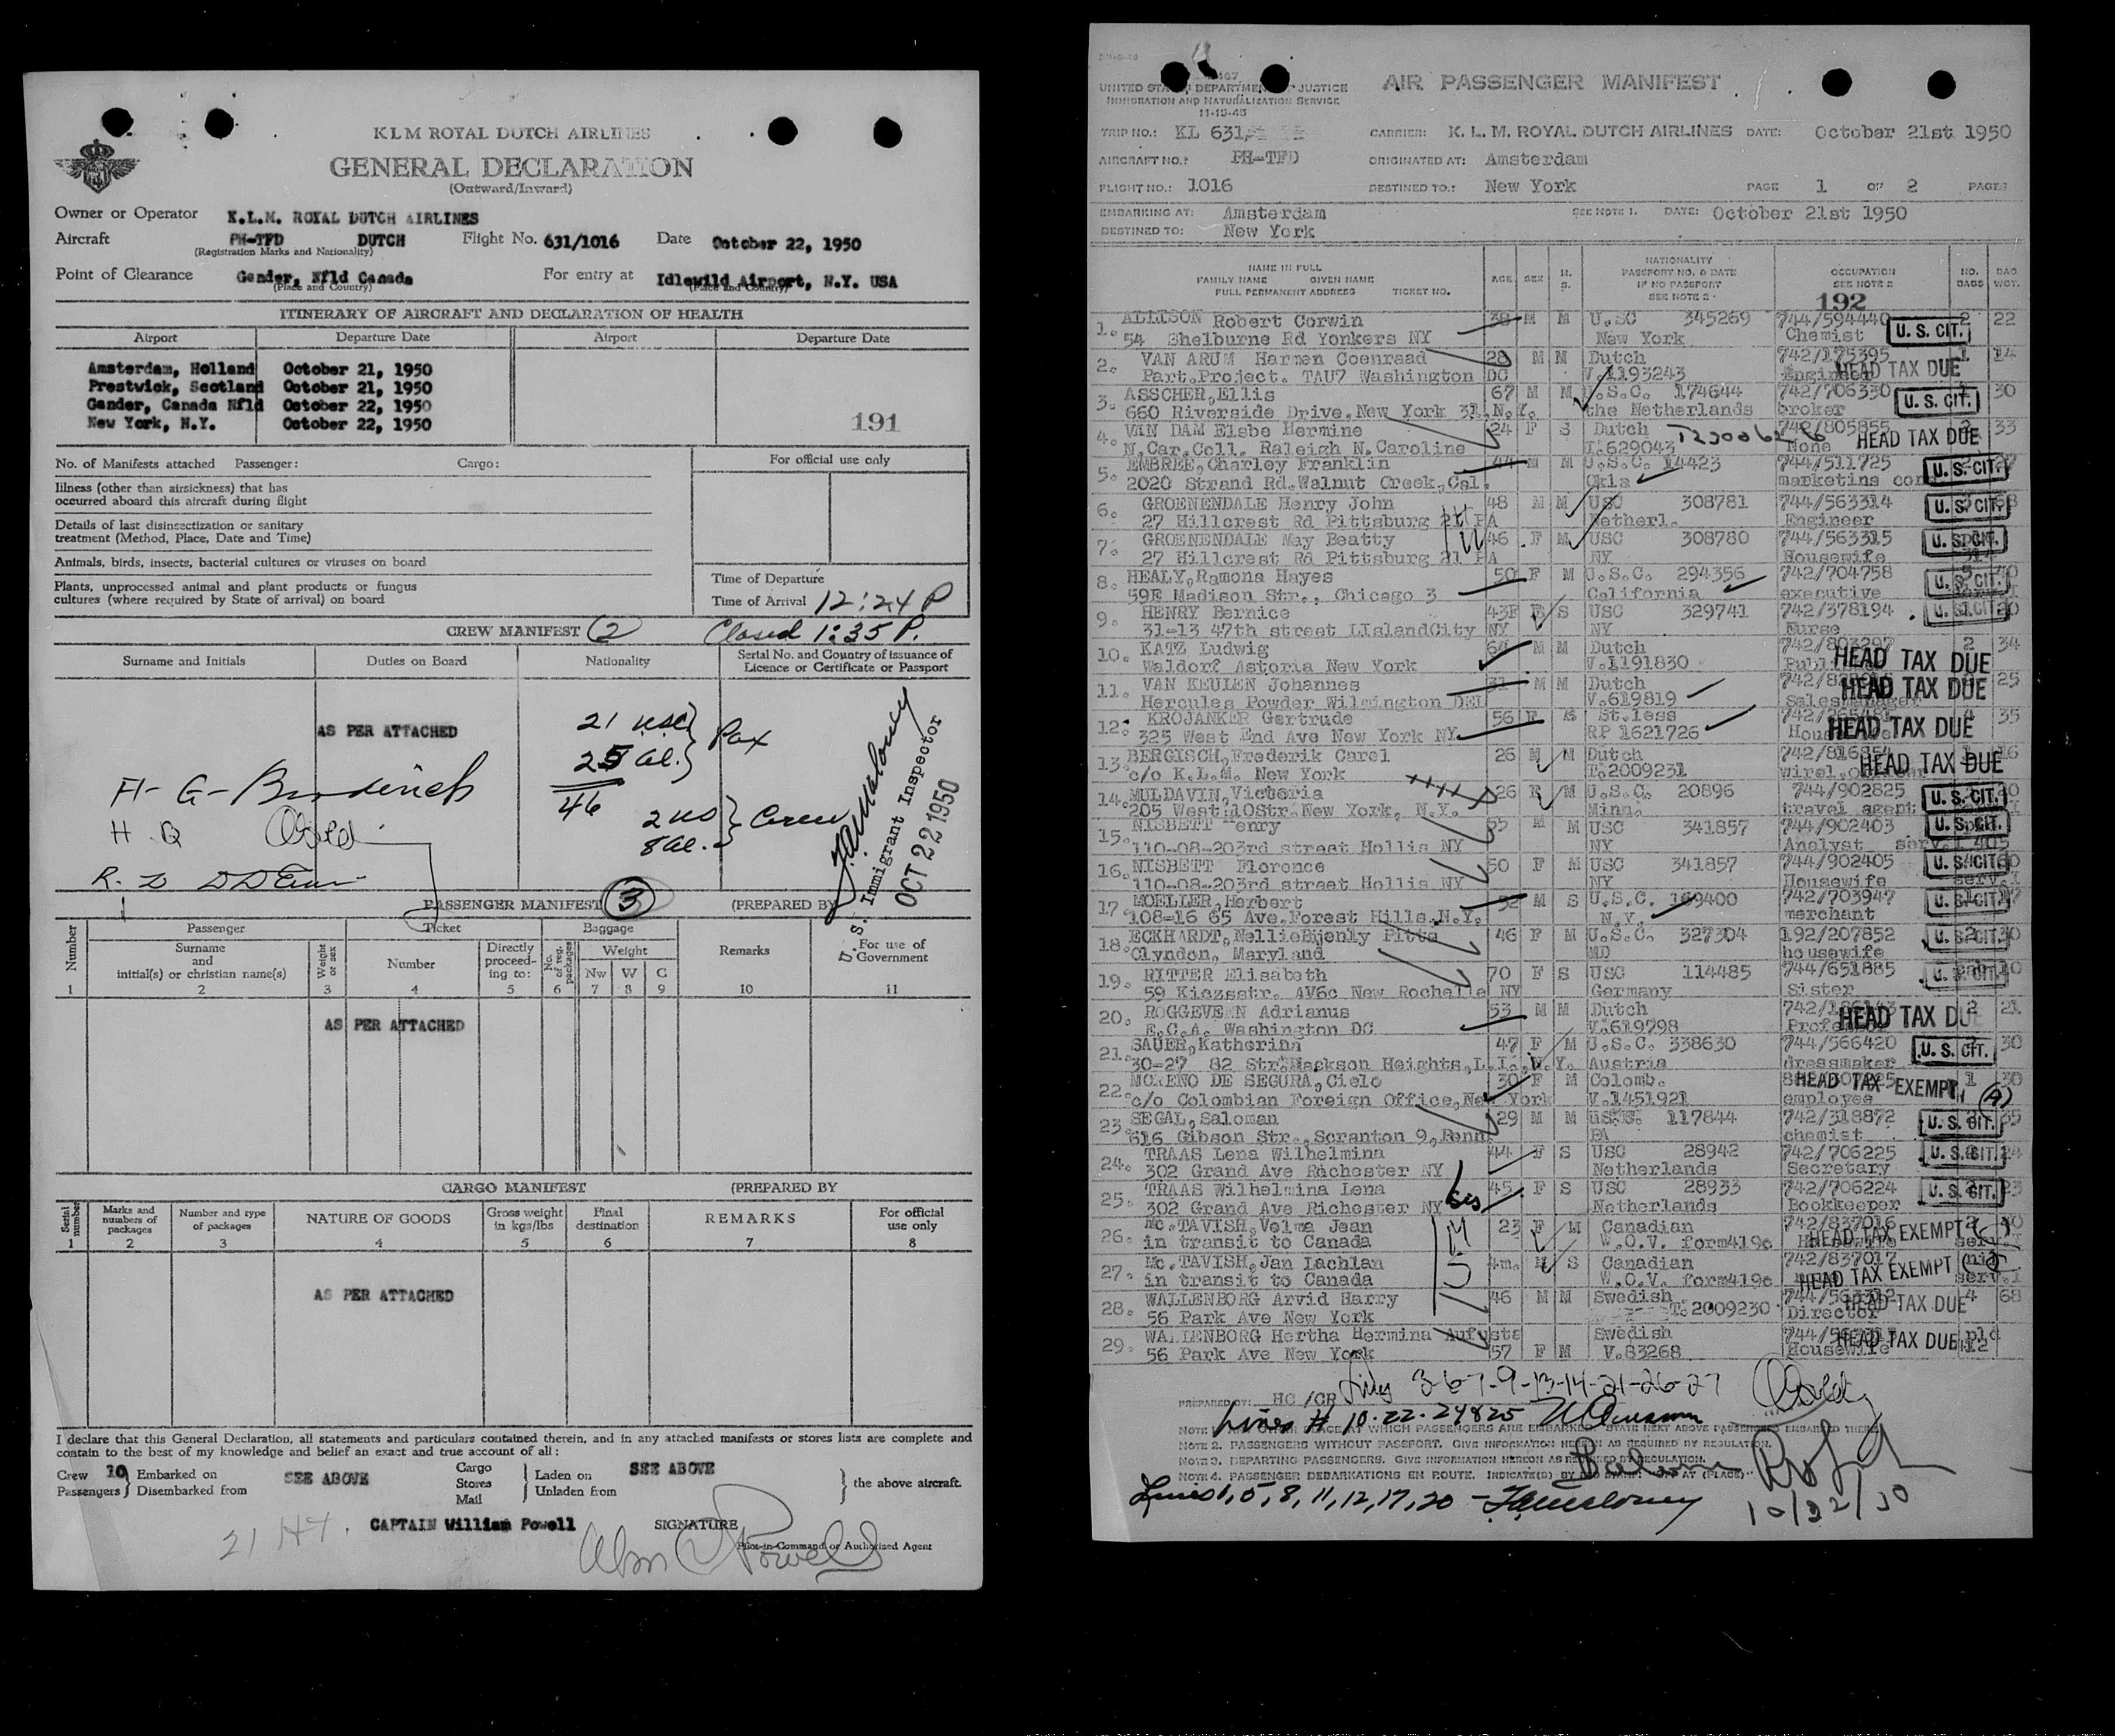 KLM ROYAL DUTCH AIRLINES
GENERAL DECLARATION
(Outward/Inward)
Owner or Operator K.L.M. ROYAL DUTCH AIRLINES
Aircraft PH-TFD DUTCH Flight No. 631/1016 Date October 22, 1950
(Registration Marks and Nationality)
Point of Clearance Gander, Nfld Canada For entry at Idlewild Airport, N.Y. USA
(Place and Country) (Place and Country)
ITINERARY OF AIRCRAFT AND DECLARATION OF HEALTH
Airport Departure Date Airport Departure Date
Amsterdam, Holland October 21, 1950
Prestwick, Scotland October 21, 1950
Gander, Canada Nfld October 22, 1950
New York, N.Y. October 22, 1950
191
No. of Manifests attached Passenger: Cargo: For official use only
Illness (other than airsickness) that has
occurred aboard this aircraft during flight
Details of last disinsectization or sanitary
treatment (Method, Place, Date and Time)
Animals, birds, insects, bacterial cultures or viruses on board
Plants, unprocessed animal and plant products or fungus
cultures (where required by State of arrival) on board
Time of Departure
Time of Arrival 12:24 P
CREW MANIFEST 2 Closed 1:35 P.
Surname and Initials Duties on Board Nationality Serial No. and Country of issuance of
Licence or Certificate or Passport
AS PER ATTACHED
21 USC
25 al. Pax
46
2 US
8 al. Crew
U. S. Immigrant Inspector
OCT 22 1950
PASSENGER MANIFEST 3 (PREPARED BY
Number Passenger Ticket Baggage Remarks For use of
Government
Surname
and
initial(s) or christian name(s) Weight or sex Number Directly
proceed-
ing to: No. of reg. packages Weight
Nw W C
1 2 3 4 5 6 7 8 9 10 11
AS PER ATTACHED
CARGO MANIFEST (PREPARED BY
Serial number Marks and
numbers of
packages Number and type
of packages NATURE OF GOODS Gross weight
in kgs/lbs Final
destination REMARKS For official
use only
1 2 3 4 5 6 7 8
AS PER ATTACHED
I declare that this General Declaration, all statements and particulars contained therein, and in any attached manifests or stores lists are complete and
contain to the best of my knowledge and belief an exact and true account of all:
Crew 10 Embarked on SEE ABOVE Cargo Laden on SEE ABOVE
Passengers Disembarked from Stores Unladen from the above aircraft.
Mail
21 HT.
CAPTAIN William Powell SIGNATURE
Pilot-in-Command or Authorized Agent
UNITED STATES DEPARTMENT OF JUSTICE
IMMIGRATION AND NATURALIZATION SERVICE
11-15-45
AIR PASSENGER MANIFEST
TRIP NO.: KL 631 CARRIER: K. L. M. ROYAL DUTCH AIRLINES DATE: October 21st 1950
AIRCRAFT NO.: PH-TFD ORIGINATED AT: Amsterdam
FLIGHT NO.: 1016 DESTINED TO.: New York PAGE 1 OF 2 PAGES
EMBARKING AT: Amsterdam SEE NOTE 1. DATE: October 21st 1950
DESTINED TO.: New York
NAME IN FULL
FAMILY NAME GIVEN NAME
FULL PERMANENT ADDRESS TICKET NO. AGE SEX M. S. NATIONALITY
PASSPORT NO. & DATE
IF NO PASSPORT
SEE NOTE 2 OCCUPATION
SEE NOTE 2 NO. BAGS BAG WGT.
192
1. ALLISON Robert Corwin 38 M M U.SC 345269 744/594440 2 22
54 Shelburne Rd Yonkers NY New York Chemist U. S. CIT.
2. VAN ARUM Harmen Coenraad 28 M M Dutch 742/175395 1 14
Part.Project. TAU7 Washington DC V.1193243 Engineer HEAD TAX DUE
3. ASSCHER,Ellis 67 M M U.S.C. 174644 742/706330 30
660 Riverside Drive,New York 31,N.Y. the Netherlands broker U. S. CIT.
4. VAN DAM Elsbe Hermine 24 F S Dutch 742/805855 33
N.Car.Coll. Raleigh N.Caroline V.629043 None HEAD TAX DUE
5. EMBREE,Charley Franklin 44 M M U.S.C. 14423 744/511725
2020 Strand Rd.Walnut Creek,Cal. Okla marketing U. S. CIT.
6. GROENENDALE Henry John 48 M M USC 308781 744/563314
27 Hillcrest Rd Pittsburg 21 PA Netherl. Engineer U. S. CIT.
7. GROENENDALE May Beatty 46 F M USC 308780 744/563315
27 Hillcrest Rd Pittsburg 21 PA NY. Housewife U. S. CIT.
8. HEALY,Ramona Hayes 50 F M U.S.C. 294356 742/704758
59E Madison Str., Chicago 3 California executive U. S. CIT.
9. HENRY Bernice 43 F S USC 329741 742/378194
31-13 47th street LIslandCity NY NY Nurse U. S. CIT.
10. KATZ Ludwig 64 M M Dutch 742/803297 2 34
Waldorf Astoria New York V.1191830 HEAD TAX DUE
11. VAN KEULEN Johannes 31 M M Dutch 25
Hercules Powder Wilmington DEL V.619819 Salesmanager HEAD TAX DUE
12. KROJANKER Gertrude 56 F St.less 4 35
325 West End Ave New York NY. RP 1621726 HEAD TAX DUE
13. BERGISCH,Frederik Carel 26 M M Dutch 742/816854 16
c/o K.L.M. New York T.2009231 HEAD TAX DUE
14. MULDAVIN,Victoria 26 F M U.S.C. 20896 744/902825
205 West 10Str.New York, N.Y. Minn. travel agent U. S. CIT.
15. NISBETT Henry 55 M M USC 341857 744/902403
110-08-203rd street Hollis NY NY Analyst U. S. CIT.
16. NISBETT Florence 50 F M USC 341857 744/902405
110-08-203rd street Hollis NY NY. Housewife U. S. CIT.
17. MOELLER,Herbert 52 M S U.S.C. 169400 742/703947
108-16 65 Ave.Forest Hills.N.Y. N.Y. merchant U. S. CIT.
18. ECKHARDT,Nellie Pitts 46 F M U.S.C. 327304 192/207852
Clyndon, Maryland MD housewife U. S. CIT.
19. RITTER Elisabeth 70 F S USC 114485 744/651885
New Rochelle NY Germany Sister U. S. CIT.
20. ROGGEVEEN Adrianus 53 M M Dutch 2 21
E.C.A. Washington DC V.619798 HEAD TAX DUE
21. SAUER,Katherina 47 F M U.S.C. 338630 744/566420 30
30-27 82 Str. Jackson Heights,L.I.,N.Y. Austria dressmaker U. S. CIT.
22. MORENO DE SEGURA,Cielo 30 F M Colomb. 1 30
c/o Colombian Foreign Office,New York V.1451921 employee HEAD TAX EXEMPT (A)
23. SEGAL,Saloman 29 M M 117844 742/318872 35
616 Gibson Str.,Scranton 9,Penn. PA chemist U. S. CIT.
24. TRAAS Lena Wilhelmina 44 F S USC 28942 742/706225
302 Grand Ave Richester NY Netherlands Secretary U. S. CIT.
25. TRAAS Wilhelmina Lena 45 F S USC 28933 742/706224
302 Grand Ave Richester NY Netherlands Bookkeeper U. S. CIT.
26. Mc.TAVISH,Velma Jean 23 F M Canadian 742/837016
in transit to Canada W.O.V. form419e HEAD TAX EXEMPT
27. Mc.TAVISH,Jan Lachlan 4m. M S Canadian 742/837017
in transit to Canada W.O.V. form419e HEAD TAX EXEMPT
28. WALLENBORG Arvid Harry 46 M M Swedish 4 68
56 Park Ave New York T.2009230 Director HEAD TAX DUE
29. WALLENBORG Hertha Hermina Augusta Swedish
56 Park Ave New York 57 F M V.83268 Housewife HEAD TAX DUE
PREPARED BY: HC /CR Lines 3-6-7-9-13-14-21-26-27
Lines # 10.22.24&25
NOTE 2. PASSENGERS WITHOUT PASSPORT. GIVE INFORMATION HEREON AS REQUIRED BY REGULATION.
NOTE 3. DEPARTING PASSENGERS. GIVE INFORMATION HEREON AS REQUIRED BY REGULATION.
NOTE 4. PASSENGER DEBARKATIONS EN ROUTE.
Lines 1, 5, 8, 11, 12, 17, 20
10/22/50